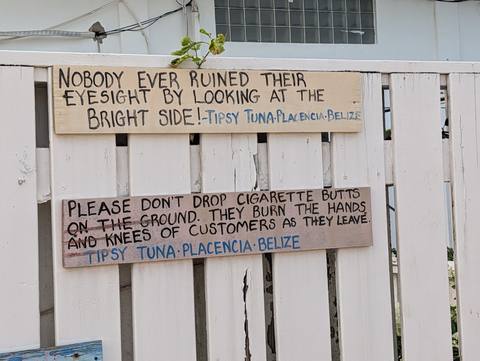 NOBODY EVER RUINED THEIR
EYESIGHT BY LOOKING AT THE
BRIGHT SIDE!-TIPSY TUNA·PLACENCIA·BELIZE
PLEASE DON'T DROP CIGARETTE BUTTS
ON THE GROUND. THEY BURN THE HANDS
AND KNEES OF CUSTOMERS AS THEY LEAVE.
TIPSY TUNA·PLACENCIA·BELIZE